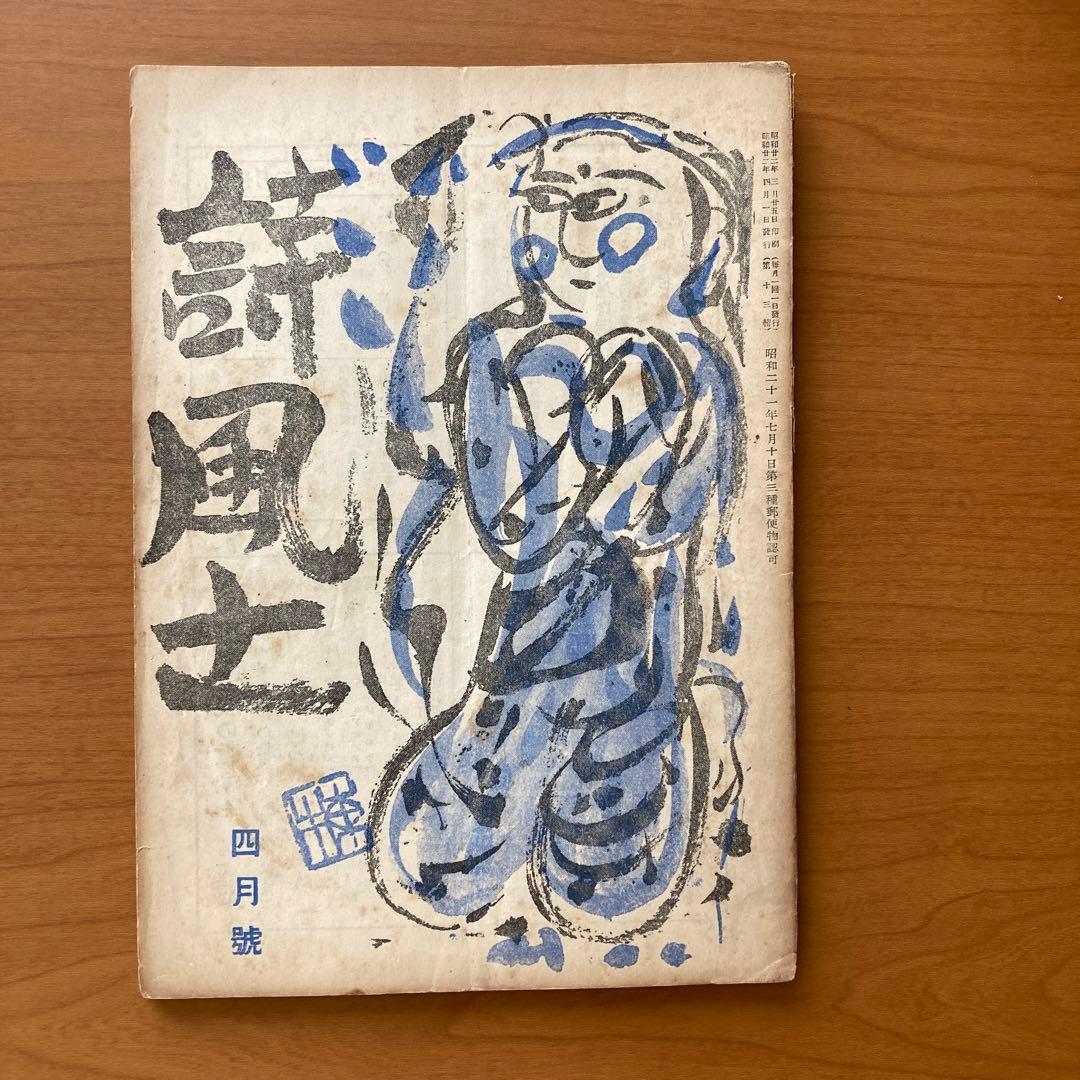 昭和廿二年三月廿五日印刷(毎月一回一日發行)
昭和廿二年四月一日發行(第十三輯)
昭和二十一年七月十日第三種郵便物認可
詩風土
四月號